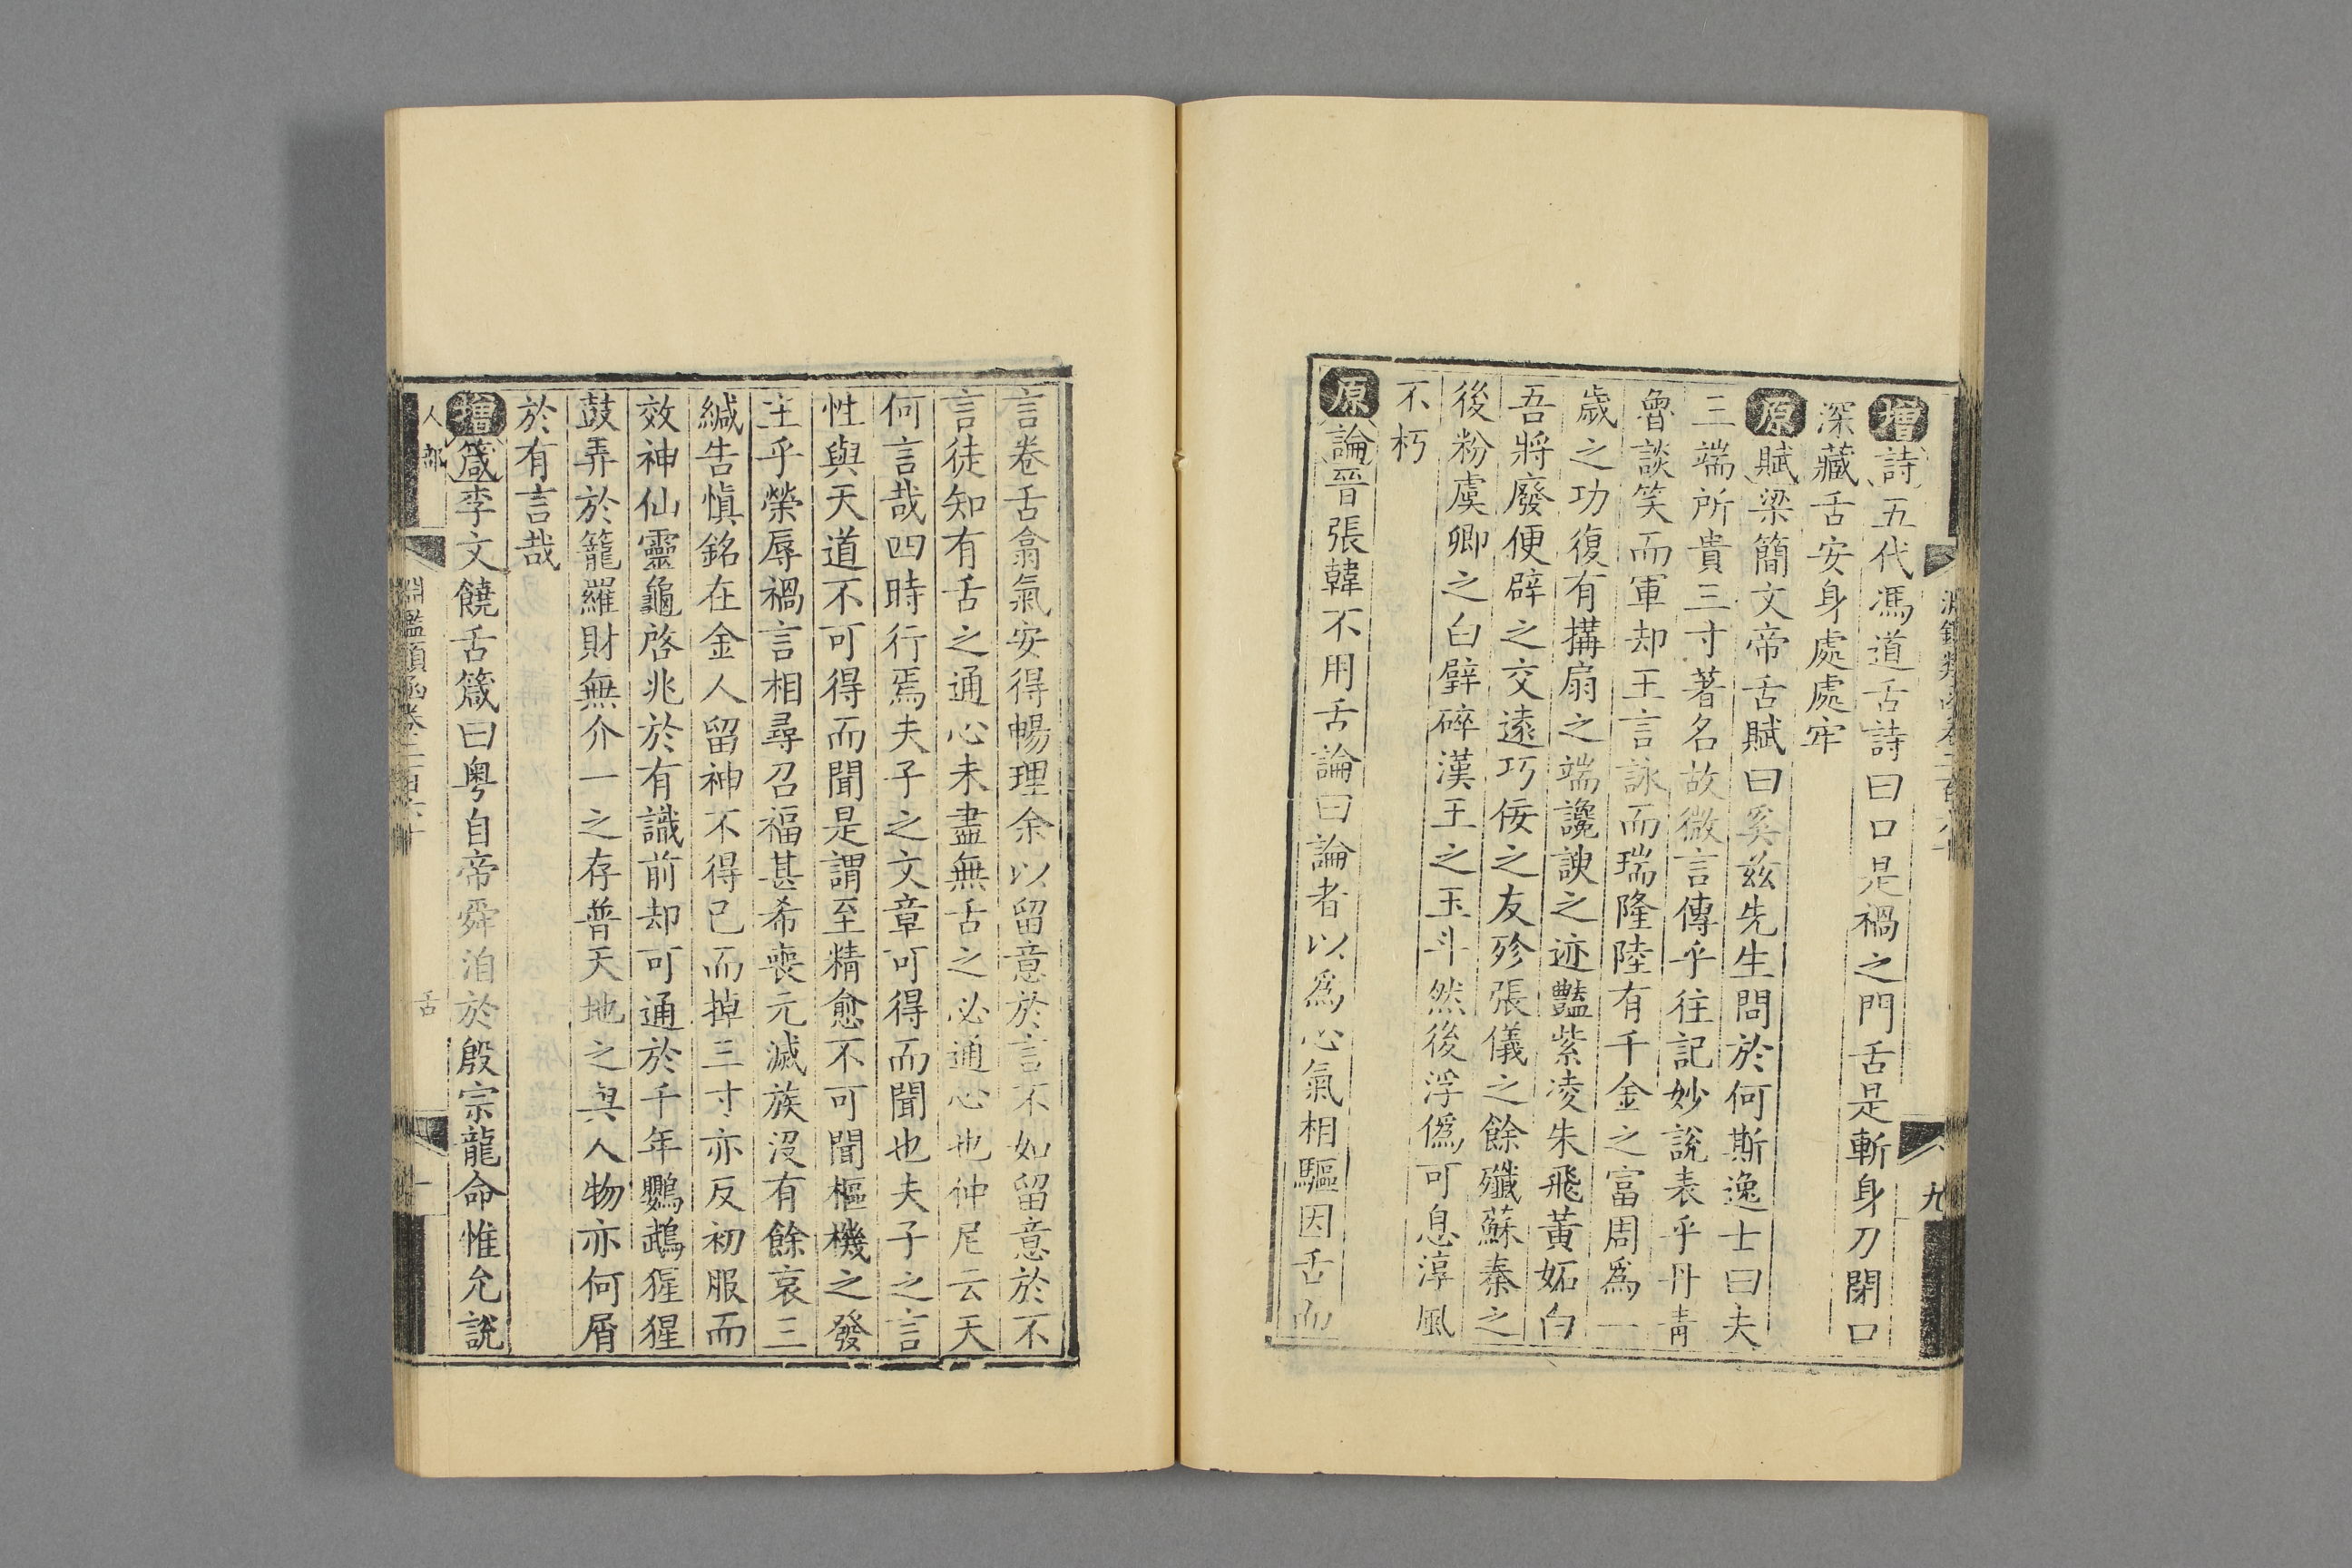 增詩五代馮道舌詩曰口是禍之門舌是斬身刀閉口
深藏舌安身處處牢
原賦梁簡文帝舌賦曰奚茲先生問於何斯逸士曰夫
三端所貴三寸著名故微言傳乎往記妙說表乎丹青
魯談笑而軍却王言詠而瑞隆陸有千金之富周爲一
歲之功復有搆扇之端讒諛之迹豔紫凌朱飛黃妬白
吾將廢便辟之交遠巧佞之友殄張儀之餘殲蘇秦之
後粉虞卿之白璧碎漢王之玉斗然後浮僞可息淳風
不朽
原論晉張韓不用舌論曰論者以爲心氣相驅因舌而
言卷舌翕氣安得暢理余以留意於言不如留意於不
言徒知有舌之通心未盡無舌之必通心也仲尼云天
何言哉四時行焉夫子之文章可得而聞也夫子之言
性與天道不可得而聞是謂至精愈不可聞樞機之發
主乎榮辱禍言相尋召福甚希喪元滅族沒有餘哀三
緘告愼銘在金人留神不得已而掉三寸亦反初服而
效神仙靈龜啓兆於有識前却可通於千年鸚鵡猩猩
鼓弄於籠羅財無介一之存普天地之與人物亦何屑
於有言哉
增箴李文饒舌箴曰粤自帝舜洎於殷宗龍命惟允說
人部
淵鑑類函卷二百六十
舌
九